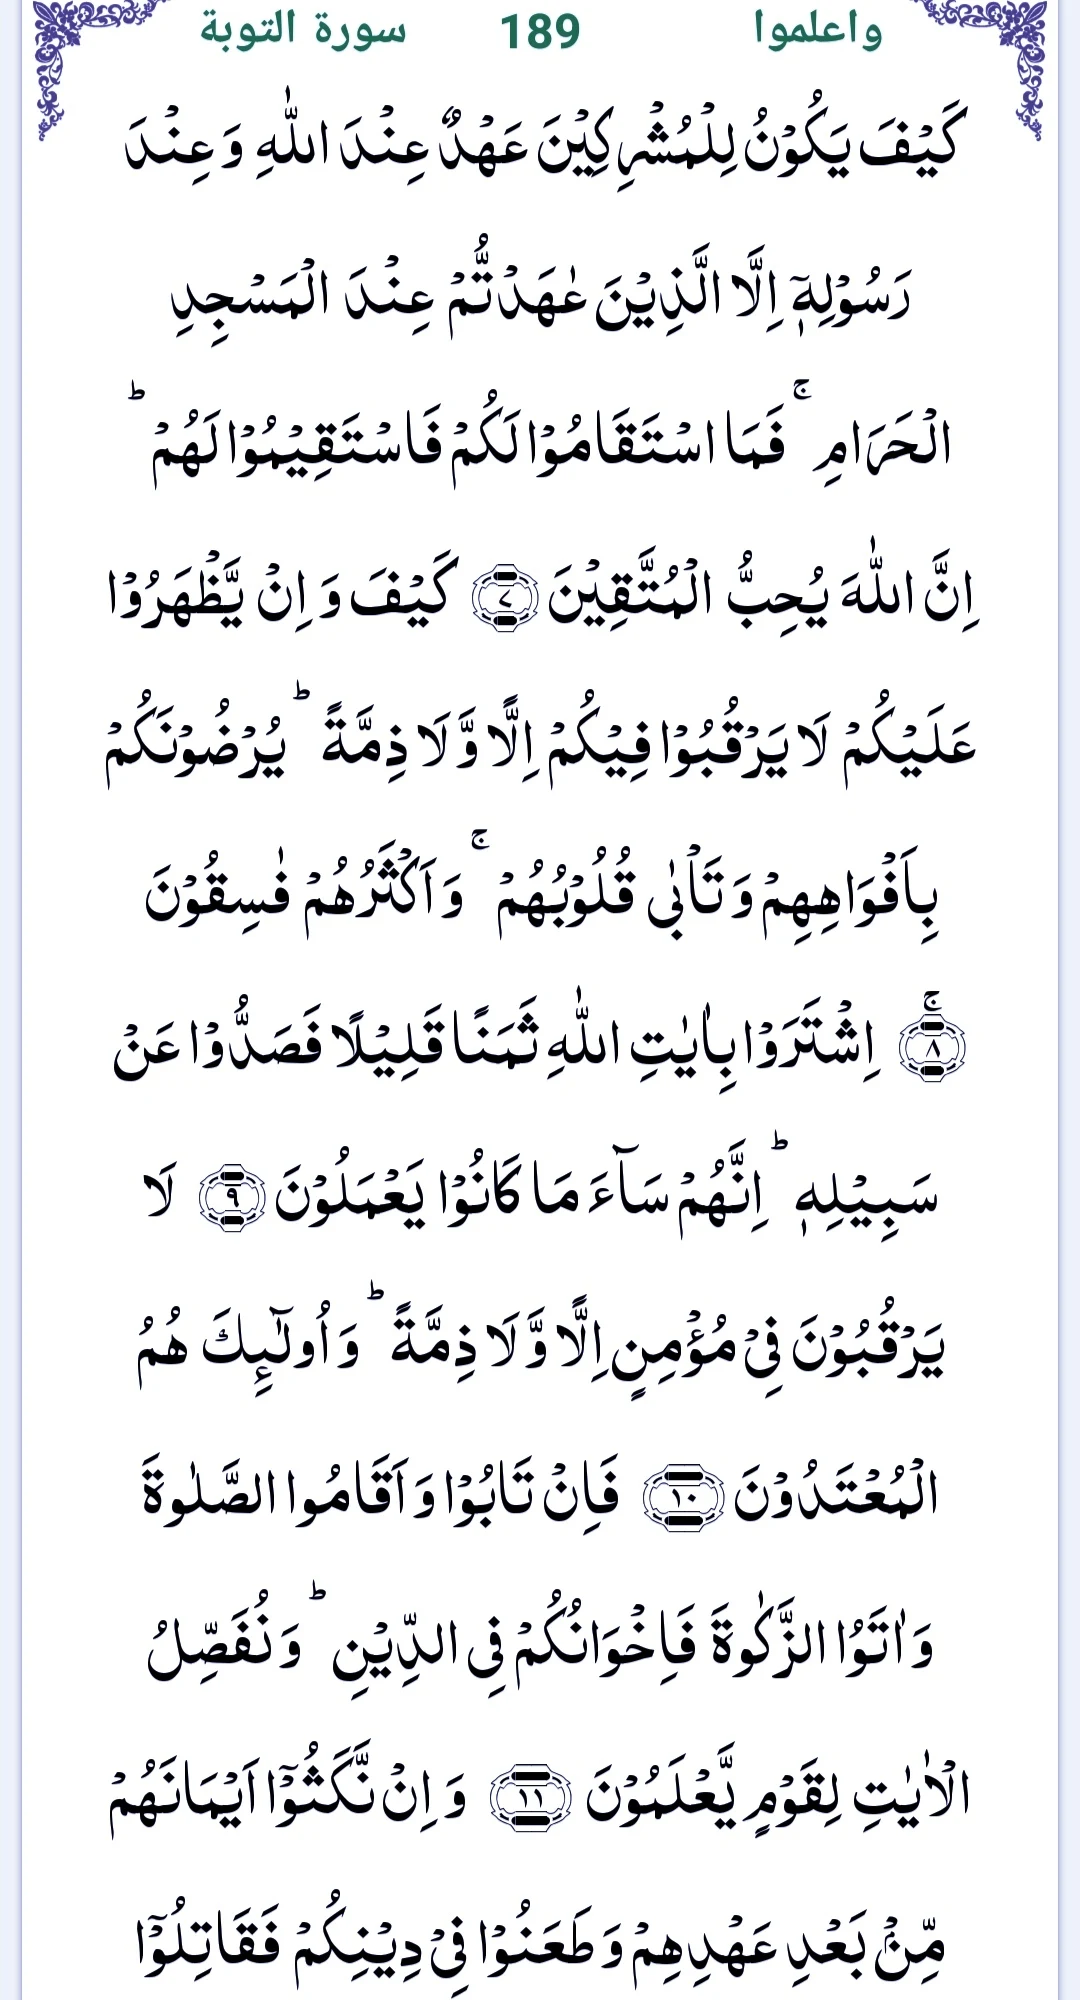 واعلموا 189 سورة التوبة
كَيْفَ يَكُوْنُ لِلْمُشْرِكِيْنَ عَهْدٌ عِنْدَ اللّٰهِ وَ عِنْدَ
رَسُوْلِهٖۤ اِلَّا الَّذِيْنَ عٰهَدْتُّمْ عِنْدَ الْمَسْجِدِ
الْحَرَامِ ۚ فَمَا اسْتَقَامُوْا لَكُمْ فَاسْتَقِيْمُوْا لَهُمْ ؕ
اِنَّ اللّٰهَ يُحِبُّ الْمُتَّقِيْنَ ﴿٧﴾ كَيْفَ وَ اِنْ يَّظْهَرُوْا
عَلَيْكُمْ لَا يَرْقُبُوْا فِيْكُمْ اِلًّا وَّ لَا ذِمَّةً ؕ يُرْضُوْنَكُمْ
بِاَفْوَاهِهِمْ وَ تَاْبٰى قُلُوْبُهُمْ ۚ وَ اَكْثَرُهُمْ فٰسِقُوْنَ
﴿٨﴾ۚ اِشْتَرَوْا بِاٰيٰتِ اللّٰهِ ثَمَنًا قَلِيْلًا فَصَدُّوْا عَنْ
سَبِيْلِهٖ ؕ اِنَّهُمْ سَآءَ مَا كَانُوْا يَعْمَلُوْنَ ﴿٩﴾ لَا
يَرْقُبُوْنَ فِيْ مُؤْمِنٍ اِلًّا وَّ لَا ذِمَّةً ؕ وَ اُولٰٓىِٕكَ هُمُ
الْمُعْتَدُوْنَ ﴿١٠﴾ فَاِنْ تَابُوْا وَ اَقَامُوا الصَّلٰوةَ
وَ اٰتَوُا الزَّكٰوةَ فَاِخْوَانُكُمْ فِى الدِّيْنِ ؕ وَ نُفَصِّلُ
الْاٰيٰتِ لِقَوْمٍ يَّعْلَمُوْنَ ﴿١١﴾ وَ اِنْ نَّكَثُوْۤا اَيْمَانَهُمْ
مِّنْۢ بَعْدِ عَهْدِهِمْ وَ طَعَنُوْا فِيْ دِيْنِكُمْ فَقَاتِلُوْۤا